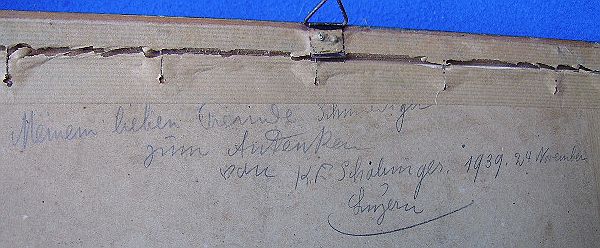 Meinem lieben Freunde
zum Andenken
von K. F. Schobinger. 1939. 24 November
Luzern